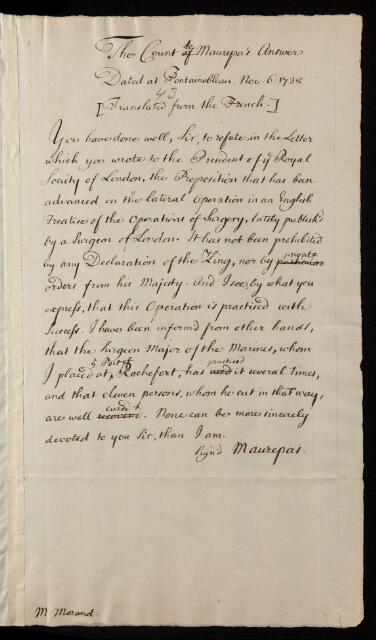 The Count de Maurepas's Answer
Dated at Fontainebleau, Nov: 6. 1738
43
[Translated from the French.]
You have done well, Sir, to refute in the Letter
which you wrote to the President of ye Royal
Society of London, the Proposition that has been
advanced on the lateral Operation in an English
Treatise of the Operations of Surgery, lately publish'd
by a Surgeon of London. It has not been prohibited
by any Declaration of the King, nor by particular private
orders from his Majesty. And I see, by what you
express, that this Operation is practised with
Success. I have been inform'd from other hands,
that the Surgeon Major of the Marines, whom
I placed at ye Port of Rochefort, has used practised it several Times,
and that eleven persons, whom he cut in that way,
are well cured. None can be more sincerely
devoted to you Sir, than I am.
Sign'd Maurepas.
M. Morand.